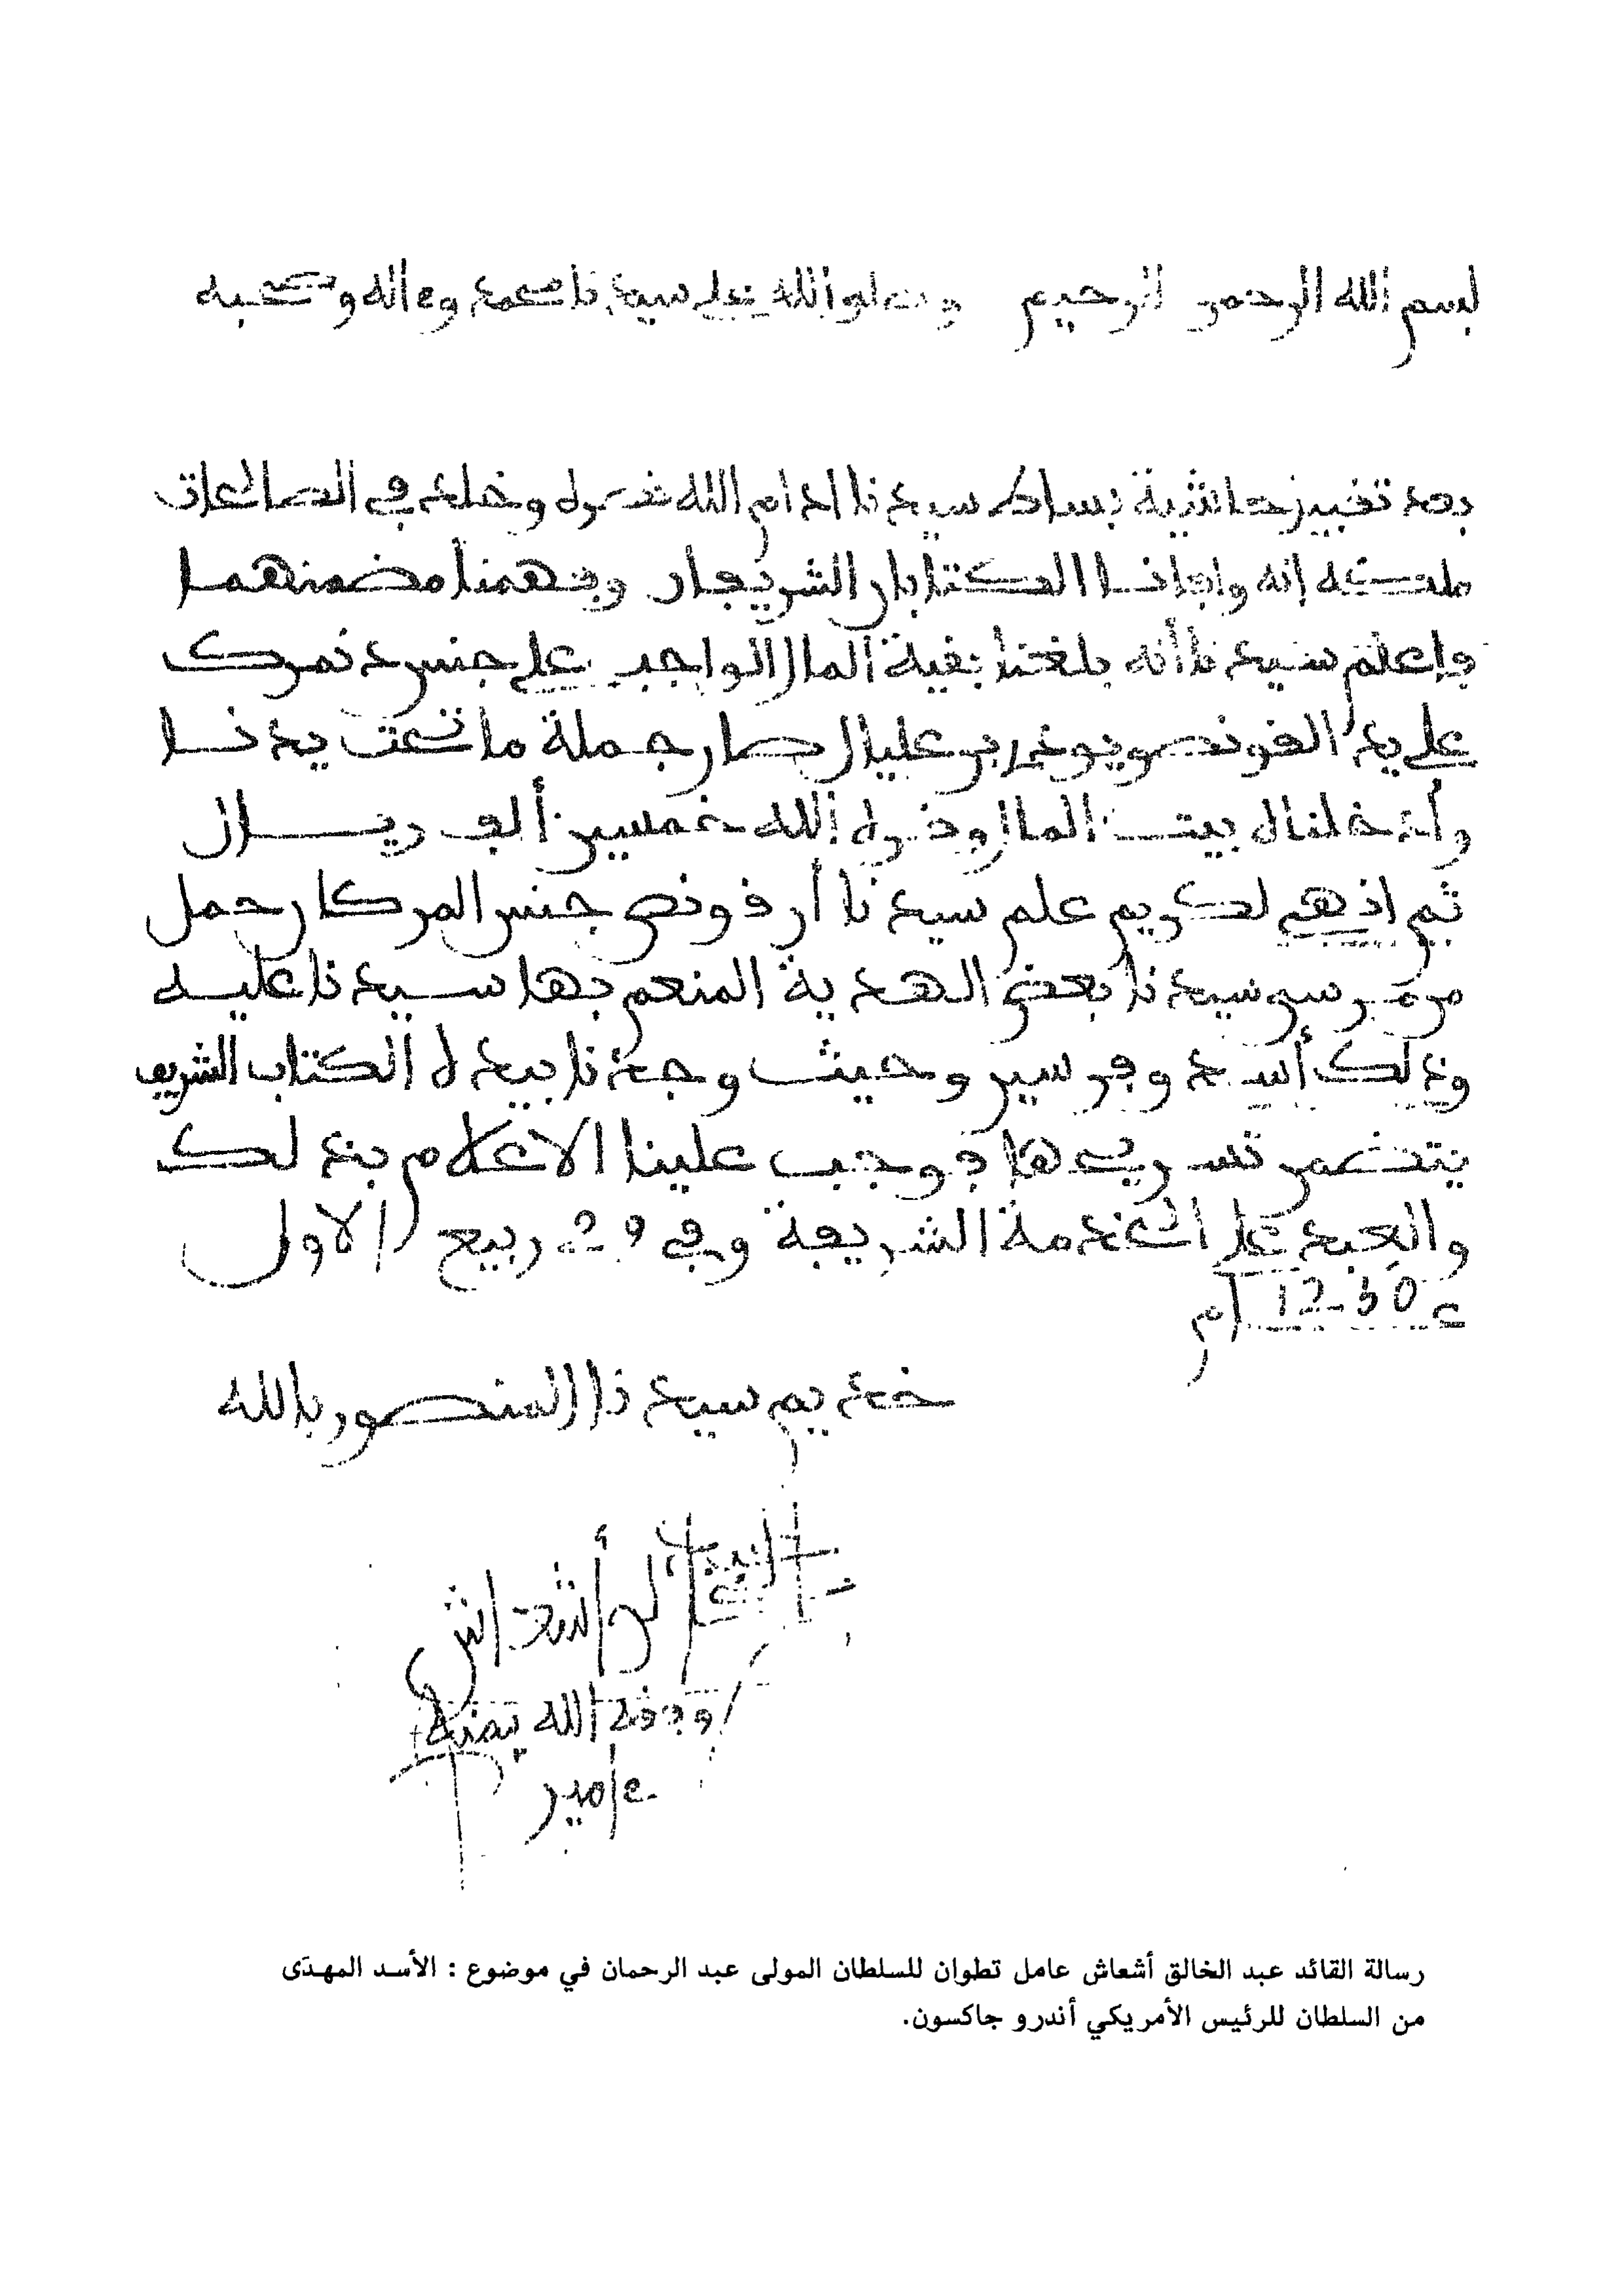 بسم الله الرحمن الرحيم وصلى الله على سيدنا محمد وءاله وصحبه
بعد تقبيل حاشية بساط سيدنا ادام الله نصره وخلد في الصالحات
إنه وافانا الكتابان الشريفان وفهمنا مضمنهما
وإعلم سيدنا أنه بلغنا بقية المال الواجب على جنس دنمرك
على يد القونصو عليل صار جملة ما تحت يدنا
وأدخلنا لبيت المال وفره الله خمسين ألف ريــال
ثم انهي لكريم علم سيدنا أن قونص جنس المركان حمل
من مرسى سيدنا بعض الهدية المنعم بها سيدنا عليه
وذلك أسد وفرسين وحيث وجدنا بيده الكتاب الشريف
يتضمن تسريحها فوجب علينا الاعلام بذلك
والعبد على الخدمة الشريفة وفي 29 ربيع الاول
عـ 1250 ام
خديم سيدنا المنصور بالله
أشعاش
وفقه الله بمنه
ءامين
رسالة القائد عبد الخالق أشعاش عامل تطوان للسلطان المولى عبد الرحمان في موضوع : الأسد المهدَى
من السلطان للرئيس الأمريكي أندرو جاكسون.